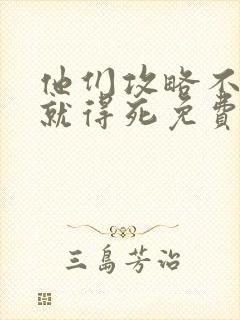 他们攻略不
就得死免费
三島芳治